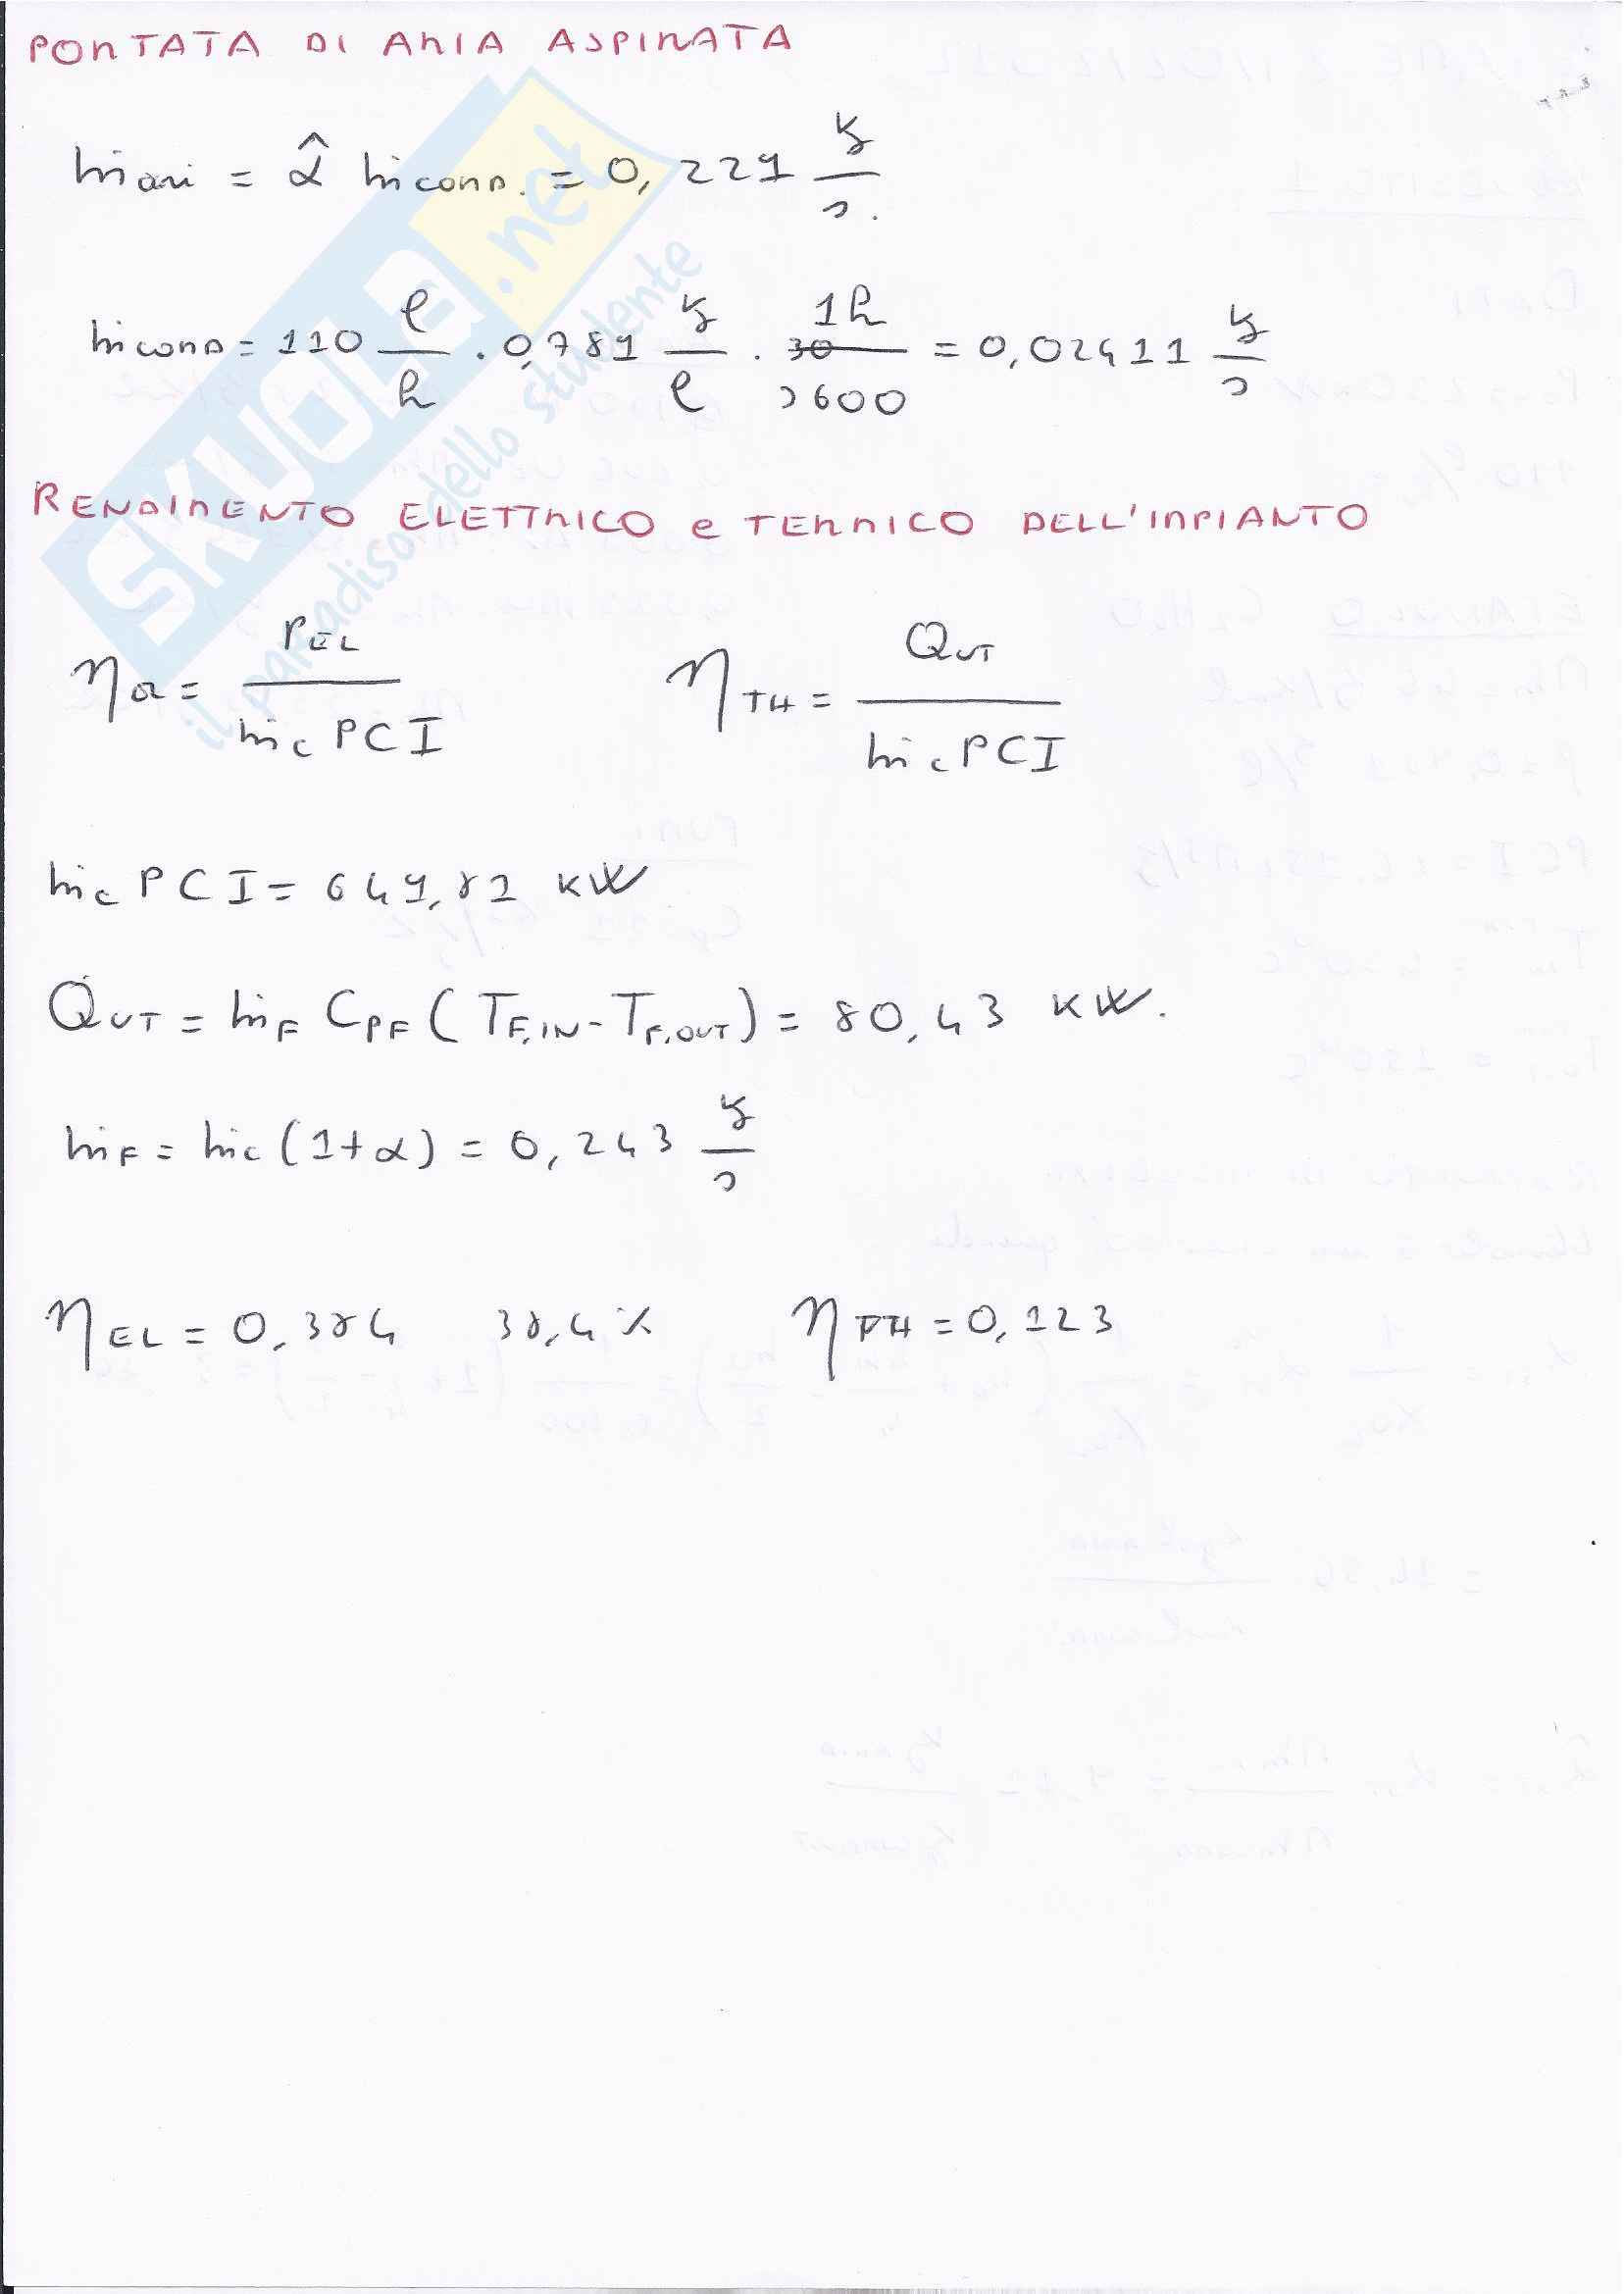 PORTATA DI ARIA ASPIRATA
ṁ ari = α̂ ṁ comb. = 0,229 kg/s.
ṁ comb = 110 l/h · 0,789 kg/l · 1h/3600 = 0,02411 kg/s
RENDIMENTO ELETTRICO e TERMICO DELL'IMPIANTO
η el = P EL / ṁc PCI    η TH = Q UT / ṁc PCI
ṁc PCI = 649,82 KW
Q UT = ṁF CPF (TF,IN - TF,OUT) = 80,43 KW.
ṁF = ṁc (1+α) = 0,243 kg/s
η EL = 0,384    38,4 %    η TH = 0,123
SKUOLA.net
il paradiso dello studente